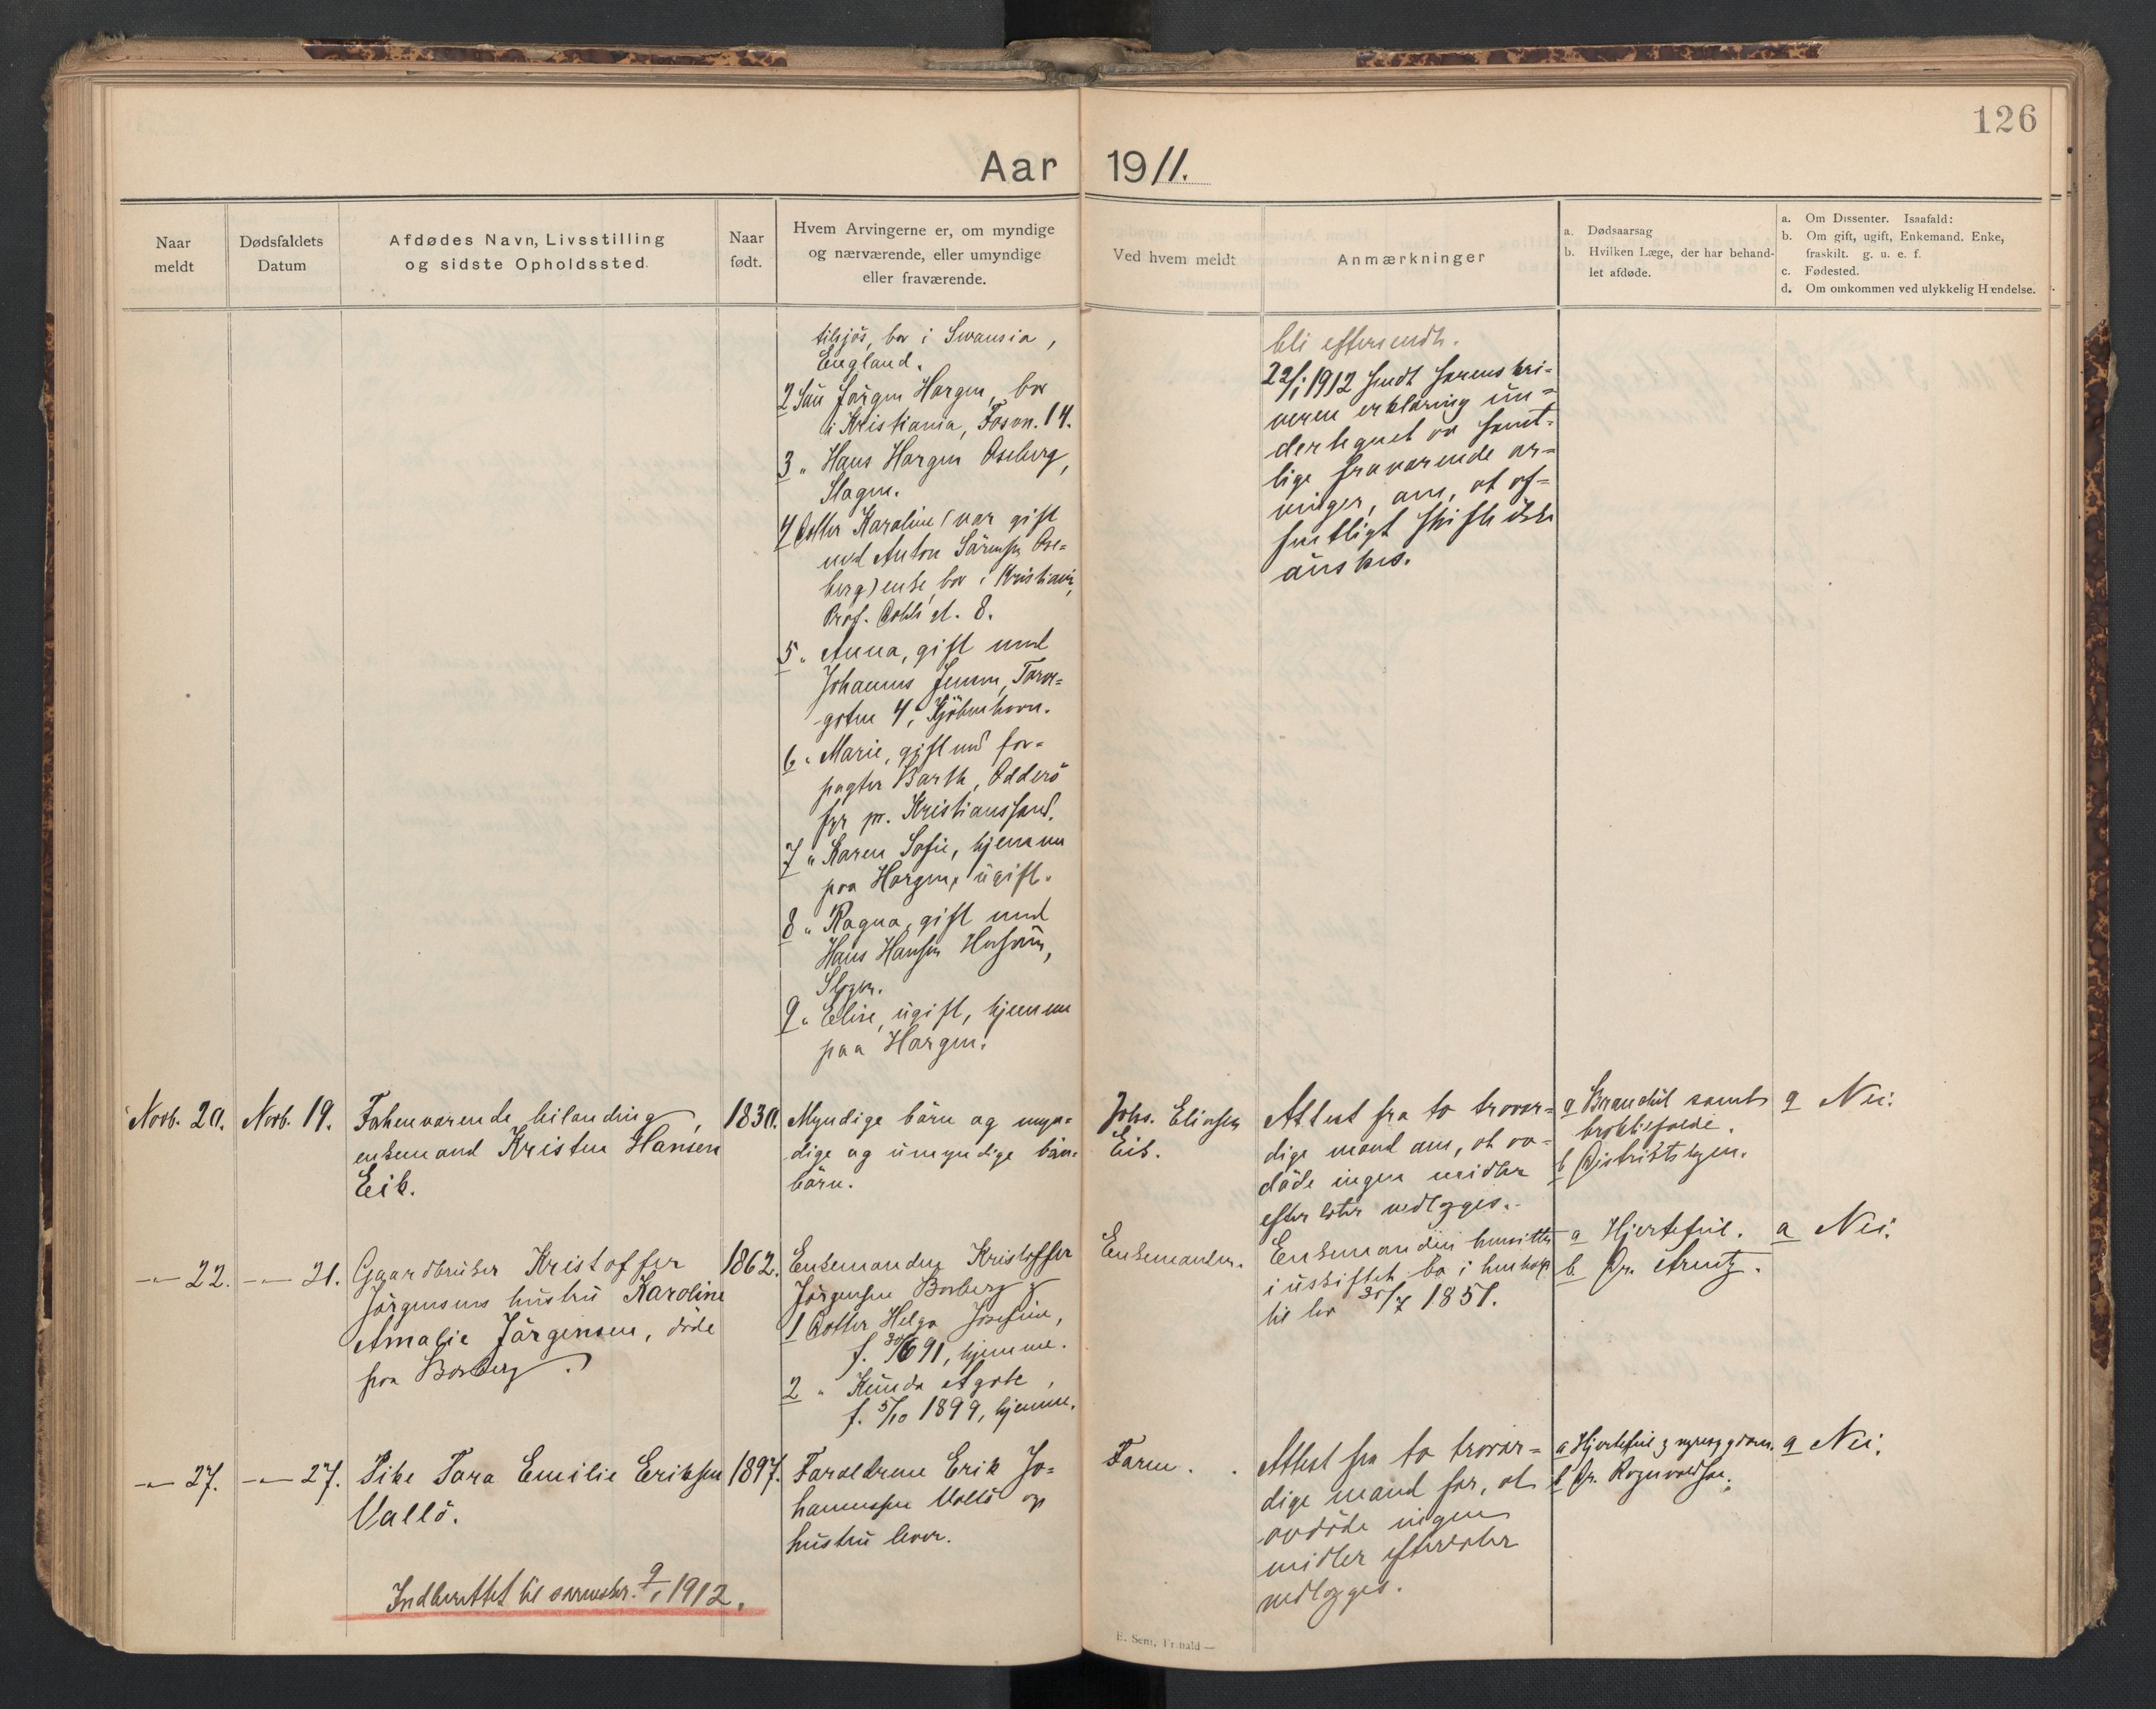 126
Aar 1911.
Naar meldt
Dødsfaldets Datum
Afdødes Navn, Livsstilling og sidste Opholdssted.
Naar født.
Hvem Arvingerne er, om myndige og nærværende, eller umyndige eller fraværende.
Ved hvem meldt
Anmærkninger
a. Dødsaarsag
b. Hvilken Læge, der har behandlet afdøde.
a. Om Dissenter. Isaafald:
b. Om gift, ugift, Enkemand. Enke, fraskilt. g. u. e. f.
c. Fødested.
d. Om omkommen ved ulykkelig Hændelse.
tilsjøs, bor i Swansia,
England.
2 Søn Jørgen Horgen, bor
i Kristiania, Fosvn. 14.
3 " Hans Horgen Oseberg,
Slagen.
4 Datter Karoline (var gift
med Anton Sørensen Ose-
berg) enke, bor i Kristiania,
Prof. Dahls st. 8.
5 " Anna, gift med
Johannes Jensen,
4, Kjøbenhavn.
6 " Marie, gift med for-
pagter Barth, Odderø
fyr pr. Kristianssand.
7 " Karen Sofie, hjemme
paa Horgen, ugift.
8 " Ragna, gift med
Hans Hansen
Slagen.
9 " Elise, ugift, hjemme
paa Horgen.
bli eftersendt.
22/1 1912 sendt sorenskri-
veren erklæring un-
dertegnet av samt-
lige fraværende ar-
vinger, om, at of-
fentligt skifte ikke
ønskes.
Novb. 20.
Novb. 19.
Fahenværende
enkemand Kristen Hansen
Eik.
1830.
Myndige børn og myn-
dige og umyndige barne-
børn.
Johs. Eliasen
Eik.
Attest fra to trovær-
dige mænd om, at av-
døde ingen midler
efterlater vedlægges.
a Brandbyl samt
b Distriktslægen.
a Nei.
-"- 22.
-"- 21.
Gaardbruker Kristoffer
Jørgensens hustru Karoline
Amalie Jørgensen, døde
paa Borberg.
1862.
Enkemanden Kristoffer
Jørgensen Borberg &
1 Datter Helga Josefine,
f. 30/6 91, hjemme.
2 " Kunda Agate,
f. 5/10 1899, hjemme.
Enkemanden.
Enkemanden hensitter
i uskiftet bo i henhold
til lov 30/7 1851.
a Hjertefeil.
b Dr. Arntz.
a Nei.
-"- 27.
-"- 27.
Pike Tora Emilie Eriksen
Vallø.
1897.
Forældrene Erik Jo-
hannessen Vallø og
hustru lever.
Faren.
Attest fra to trovær-
dige mænd for, at
avdøde ingen
midler efterlater
vedlægges.
a Hjertefeil & nyresygdom.
b Dr. Rognvaldsen.
a Nei.
Indberettet til sorenskr. 9/1 1912.
E. Sem, Fr.hald —